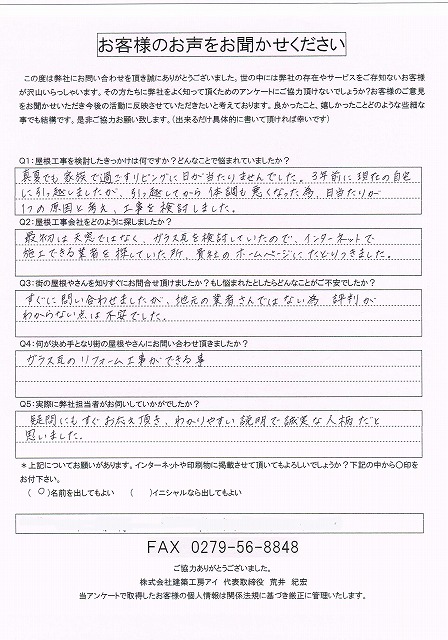 お客様のお声をお聞かせください
この度は弊社にお問い合わせを頂き誠にありがとうございました。世の中には弊社の存在やサービスをご存知ないお客様
が沢山いらっしゃいます。その方たちに弊社をよく知って頂くためのアンケートにご協力頂けないでしょうか?お客様のご意見
をお聞かせいただき今後の活動に反映させていただきたいと考えております。良かったこと、嬉しかったことどのような些細な
事でも結構です。是非ご協力お願い致します。(出来るだけ具体的に書いて頂ければ幸いです)
Q1:屋根工事を検討したきっかけは何ですか?どんなことで悩まれていましたか?
真夏でも家族で過ごすリビングに日が当たりませんでした。3年前に現在の自宅
に引っ越しましたが、引っ越してから体調も悪くなった為、日当たりが
1つの原因と考え、工事を検討しました。
Q2:屋根工事会社をどのように探しましたか?
最初は天窓ではなく、ガラス瓦を検討していたので、インターネットで
施工できる業者を探していた所、貴社のホームページにたどりつきました。
Q3:街の屋根やさんを知りすぐにお問合せ頂けましたか?もし悩まれたとしたらどんなことがご不安でしたか?
すぐに問い合わせましたが、地元の業者さんではない為 評判が
わからない点は不安でした。
Q4:何が決め手となり街の屋根やさんにお問い合わせ頂きましたか?
ガラス瓦のリフォーム工事ができる事
Q5:実際に弊社担当者がお伺いしていかがでしたか?
疑問にもすぐお応え頂き、わかりやすい説明で誠実な人柄だと
思いました。
*上記についてお願いがあります。インターネットや印刷物に掲載させて頂いてもよろしいでしょうか?下記の中から〇印を
お付下さい。
(〇)名前を出してもよい ( )イニシャルなら出してもよい
FAX 0279-56-8848
ご協力ありがとうございました。
株式会社建築工房アイ 代表取締役 荒井 紀宏
当アンケートで取得したお客様の個人情報は関係法規に基づき厳正に管理いたします。